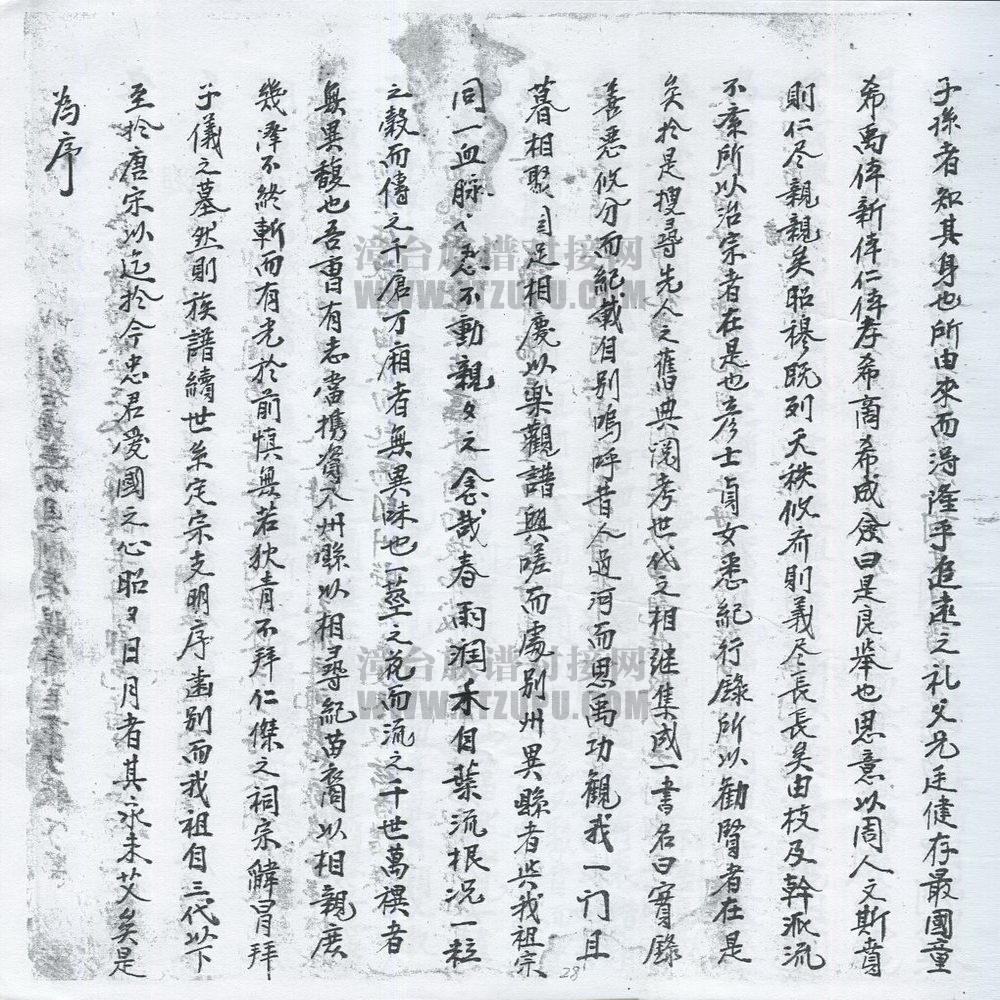 子孫者知其身也所由來而淂隆乎追遠之礼父兄廷健存最國童
希禹倖新倖仁倖孝希商希成僉曰是良舉也思意以周人文斯貴
則仁尽親親矣昭穆既列天秩攸斉則義尽長長矣由枝及幹派流
不紊所以治宗者在是也彦士貞女悉紀行錄所以勸賢者在是
矣於是搜尋先人之舊典閲考世代之相继集成一書名曰實錄
善悪攸分而紀載自别嗚呼昔人過河而思禹功觀我一门且
暮相聚自足相慶以樂觀譜興嗟而處别州異縣者与我祖宗
同一血脉不動親々之念哉春雨润禾自葉流根况一粒
之穀而儔之千倉万廂者無異味也一莖之花而流之千世萬禩者
無異馥也吾曹有志當携資入州縣以相尋紀苗裔以相親庶
幾澤不終斬而有光於前慎無若狄青不拜仁傑之祠宗韡冒拜
子儀之墓然則族譜續世系定宗支明序齒别而我祖自三代以下
至於唐宋以迄於今忠君愛國之心昭々日月者其永未艾矣是
為序
漳台族谱对接网
WWW.ZTZUPU.COM
漳台族谱对接网
WWW.ZTZUPU.COM
28